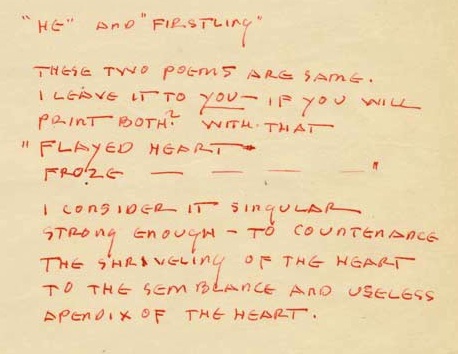 "HE" AND "FIRSTLING"
THESE TWO POEMS ARE SAME.
I LEAVE IT TO YOU – IF YOU WILL
PRINT BOTH? WITH THAT
"FLAYED HEART
FROZE — — — — "
I CONSIDER IT SINGULAR
STRONG ENOUGH – TO COUNTENANCE
THE SHRIVELING OF THE HEART
TO THE SEMBLANCE AND USELESS
APENDIX OF THE HEART.